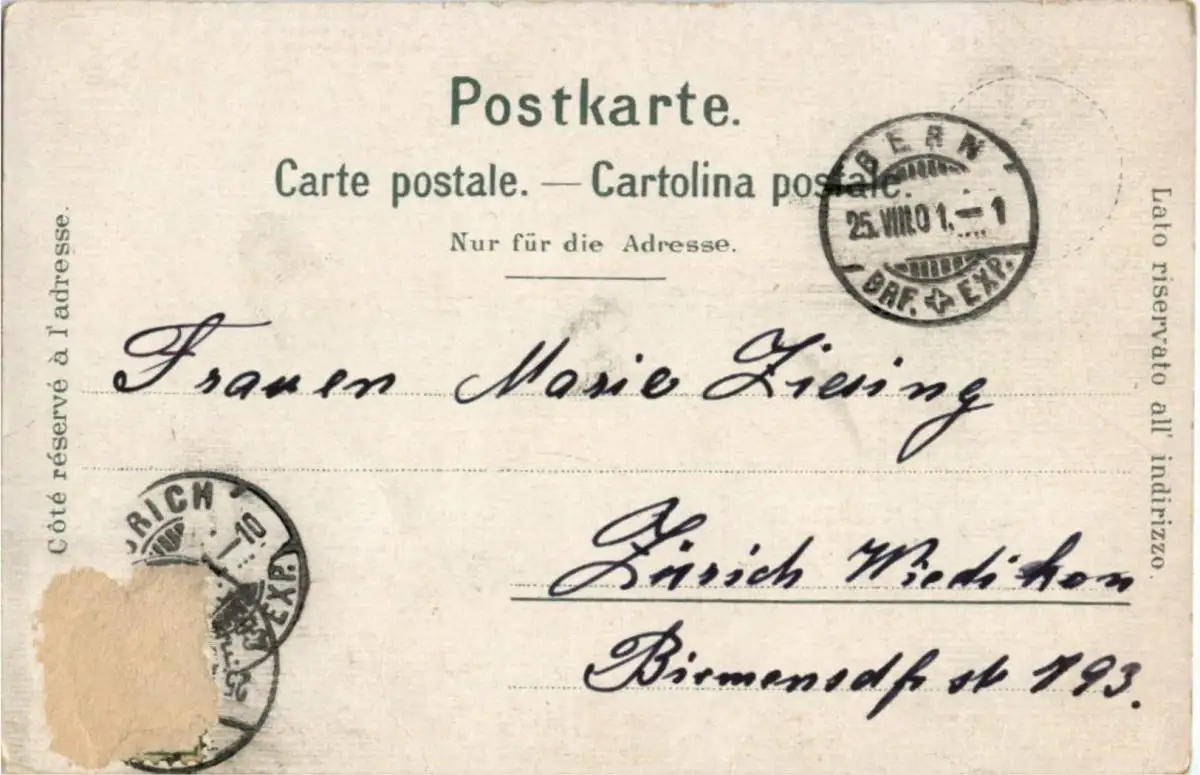 Postkarte.
Carte postale. — Cartolina postale.
Nur für die Adresse.
Côté réservé à l'adresse.
Lato riservato all' indirizzo.
BERN
25.VIII.01.—1
BRF. EXP.
Frauen Marie Ziesing
Zürich Wiedikon
Biermensdf st 193.
RICH
10
EXP.
25